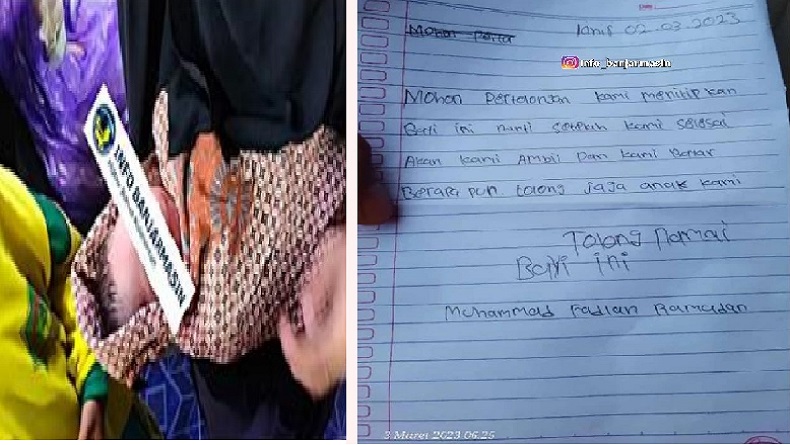 INFO BANJARMASIN
Mohon Perto
Kamis 02.03.2023
info_banjarmasin
Mohon Pertolongan kami menitipkan
Bayi ini nanti setelah kami selesai
Akan kami Ambil Dan kami Bayar
Berapa pun tolong jaja anak kami
Tolong Namai
Bayi ini
Muhammad Fadlan Ramadan
3 Maret 2023 06.25